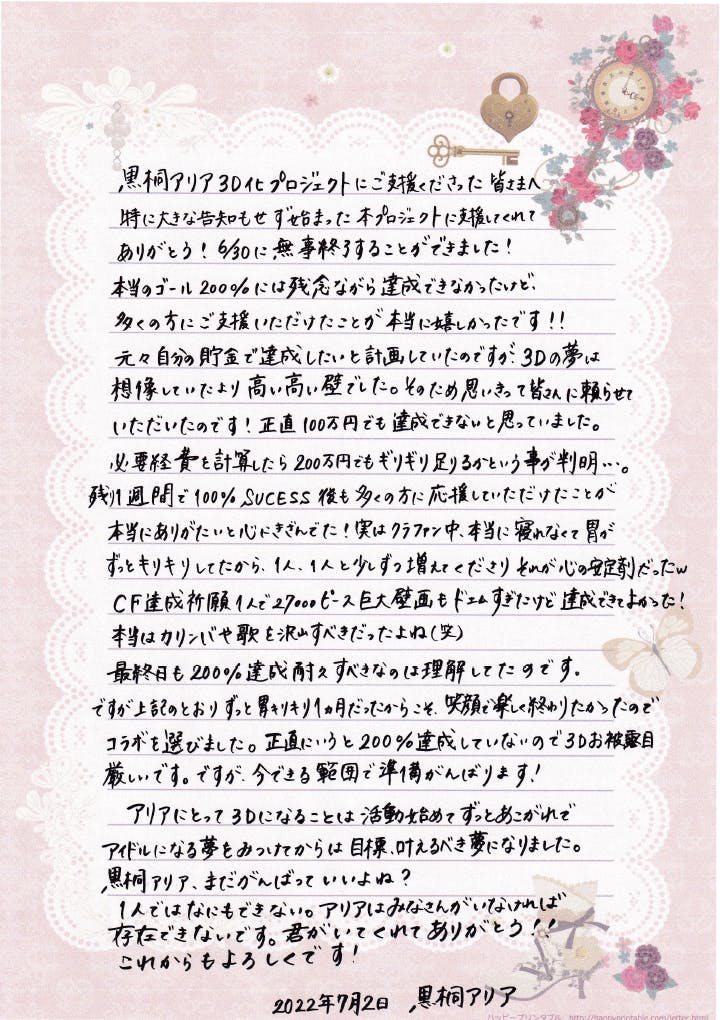 黒桐アリア3D化プロジェクトにご支援くださった皆さまへ
特に大きな告知もせず始まった本プロジェクトに支援してくれて
ありがとう！6/30に無事終了することができました！
本当のゴール200%には残念ながら達成できなかったけど、
多くの方にご支援いただけたことが本当に嬉しかったです！！
元々自分の貯金で達成したいと計画していたのですが、3Dの夢は
想像していたより高い高い壁でした。そのため思いきって皆さんに頼らせて
いただいたのです！正直100万円でも達成できないと思っていました。
必要経費を計算したら200万円でもギリギリ足りるかという事が判明…。
残り1週間で100% SUCESS後も多くの方に応援していただけたことが
本当にありがたいと心にきざんでた！実はクラファン中、本当に寝れなくて胃が
ずっとキリキリしてたから、1人、1人と少しずつ増えてくださりそれが心の安定剤だったw
CF達成祈願1人で27000ピース巨大壁画もドエムすぎたけど達成できてよかった！
本当はカリンバや歌を沢山すべきだったよね(笑)
最終日も200%達成耐久すべきなのは理解してたのです。
ですが上記のとおりずっと胃キリキリ1ヵ月だったからこそ、笑顔で楽しく終わりたかったので
コラボを選びました。正直にいうと200%達成していないので3Dお披露目
厳しいです。ですが、今できる範囲で準備がんばります！
アリアにとって3Dになることは活動始めてずっとあこがれで
アイドルになる夢をみつけてからは目標、叶えるべき夢になりました。
黒桐アリア、まだがんばっていいよね？
1人ではなにもできない。アリアはみなさんがいなければ
存在できないです。君がいてくれてありがとう！！
これからもよろしくです！
2022年7月2日 黒桐アリア
ハッピープリンタブル http://happyprintable.com/letter.html